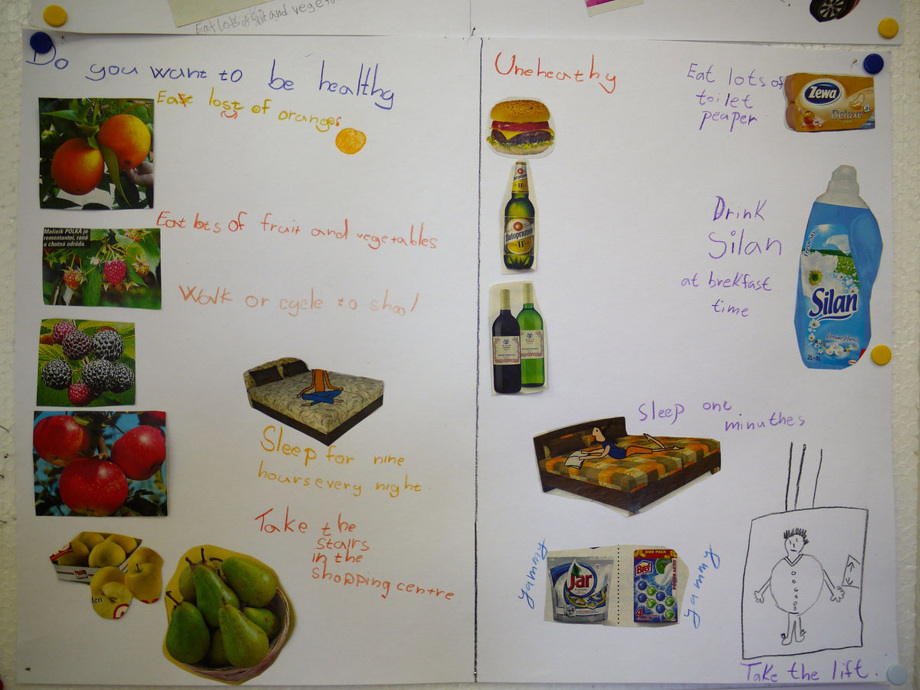 Eat lots of fruit and vegeta
Do you want to be healthy
Eat lost of oranges
Malíník POLKA je
remontantní, raná
a chutná odrůda.
Eat lots of fruit and vegetables
Walk or cycle to shool
Sleep for nine
hours every night.
Take the
stairs
in the
shopping centre
Uneheathy
Eat lots of
toilet
peaper
Zewa
Deluxe
Staropramen
11
Drink
Silan
at brekfast
time
Silan
Sleep one
minuthes
yammy
Jar
Bref
DUO PACK
yammy
Take the lift.